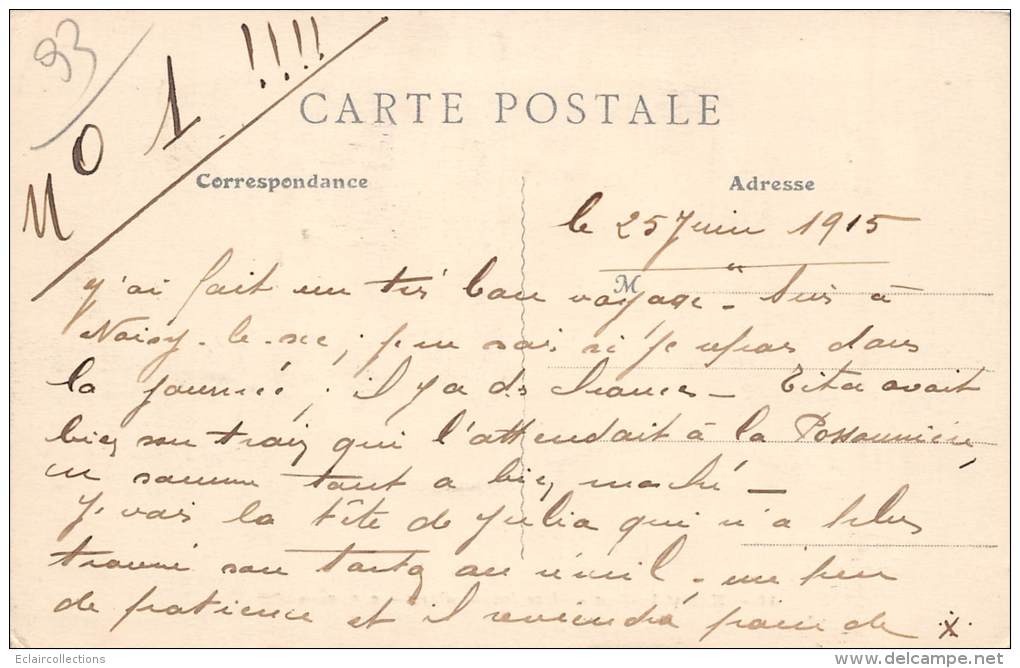 93
No 1 !!!!
CARTE POSTALE
Correspondance
Adresse
le 25 Juin 1915
M
J'ai fait un très bon voyage - Suis à
Noisy-le-sec ; je ne sais si je repars dans
la journée ; il y a des chances - Tita avait
bien son train qui l'attendait à la Possonnière,
en somme tout a bien marché -
Je vois la tête de Julia qui n'a plus
trouvé son au réveil - un peu
de patience et il reviendra faire de
Eclaircollections
www.delcampe.net